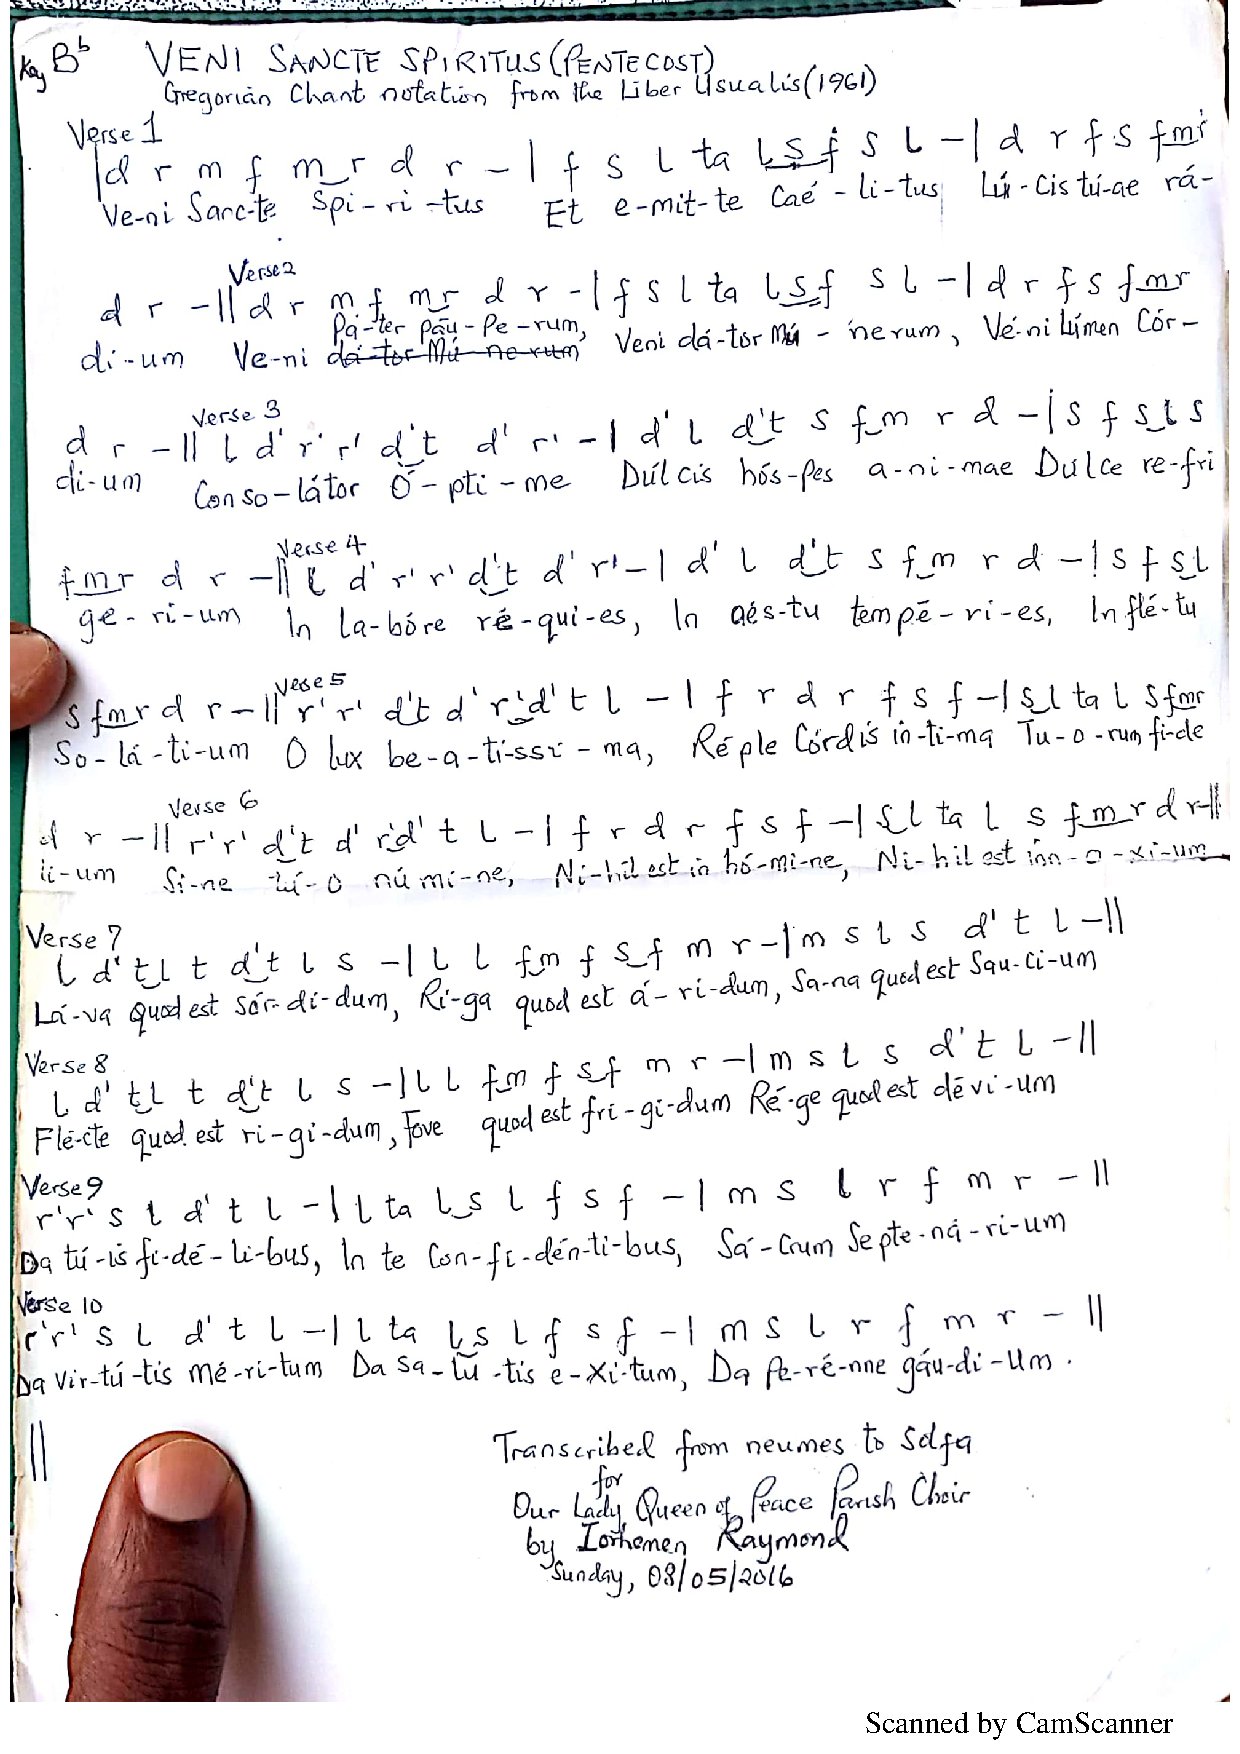 Key Bb VENI SANCTE SPIRITUS (PENTECOST)
Gregorian Chant notation from the Liber Usualis (1961)
Verse 1
|d r m f m_r d r -| f s l ta l_s_f s l -| d r f s fmr
Ve-ni Sanc-te Spi-ri-tus Et e-mit-te Caé-li-tus Lú-cis tú-ae rá-
Verse 2
d r -|| d r m f mr d r -| f s l ta l_s_f s l -| d r f s fmr
Pá-ter páu-Pe-rum,
di-um Ve-ni dá-tor Mú-ne-rum Veni dá-tor Mú-nerum, Vé-ni lúmen Cór-
Verse 3
d r -|| l d' r' r' d't d' r' -| d' l d't s f_m r d -| s f s_l s
di-um Con so-látor Ó-pti-me Dúlcis hós-pes a-ni-mae Dulce re-fri
Verse 4
fmr d r -|| l d' r' r' d't d' r' -| d' l d't s f_m r d -| s f s_l
ge-ri-um In la-bóre ré-qui-es, In aés-tu tempé-ri-es, In flé-tu
Vese 5
s fmr d r -|| r' r' d't d' r'_d' t l -| f r d r f s f -| s_l ta l s fmr
So-lá-ti-um O lux be-a-ti-ssi-ma, Réple Córdis in-ti-ma Tu-o-rum fi-de
Verse 6
d r -|| r' r' d't d' r'd' t l -| f r d r f s f -| s_l ta l s f_m_r d r -||
li-um Si-ne tú-o nú mi-ne, Ni-hil est in hó-mi-ne, Ni-hil est inn-o-xi-um
Verse 7
l d' t_l t d'_t l s -| l l f_m f s_f m r -| m s l s d' t l -||
Lá-va quod est Sór-di-dum, Ri-ga quod est á-ri-dum, Sa-na quod est Sau-ci-um
Verse 8
l d' t_l t d'_t l s -| l l f_m f s_f m r -| m s l s d' t l -||
Flé-cte quod est ri-gi-dum, Fove quod est frí-gi-dum Ré-ge quod est dévi-um
Verse 9
r' r' s l d' t l -| l ta l_s l f s f -| m s l r f m r -||
Da tú-is fi-dé-li-bus, In te Con-fi-dén-ti-bus, Sá-crum Septe-ná-ri-um
Verse 10
r' r' s l d' t l -| l ta l_s l f s f -| m s l r f m r -||
Da Vir-tú-tis mé-ri-tum Da Sa-lú-tis é-xi-tum, Da Pe-ré-nne gáu-di-um.
||
Transcribed from neumes to Solfa
for
Our Lady Queen of Peace Parish Choir
by Iorhemen Raymond
Sunday, 08/05/2016
Scanned by CamScanner